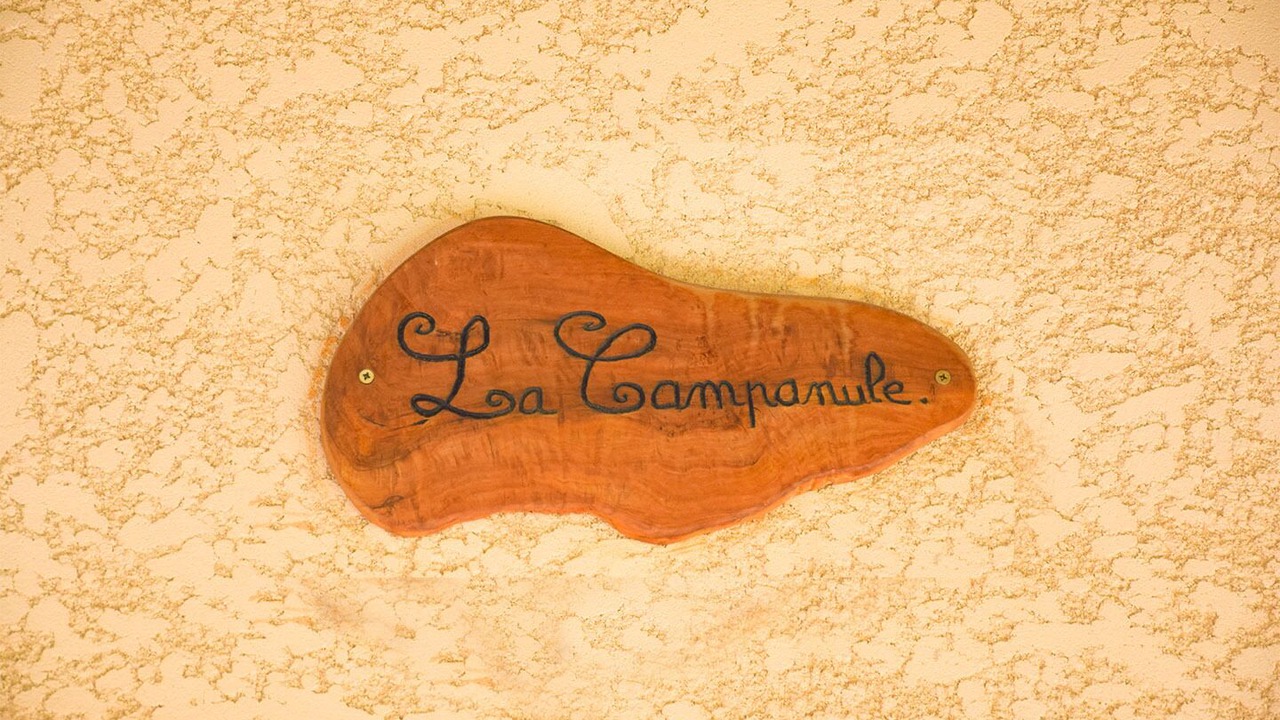 La Campanule.